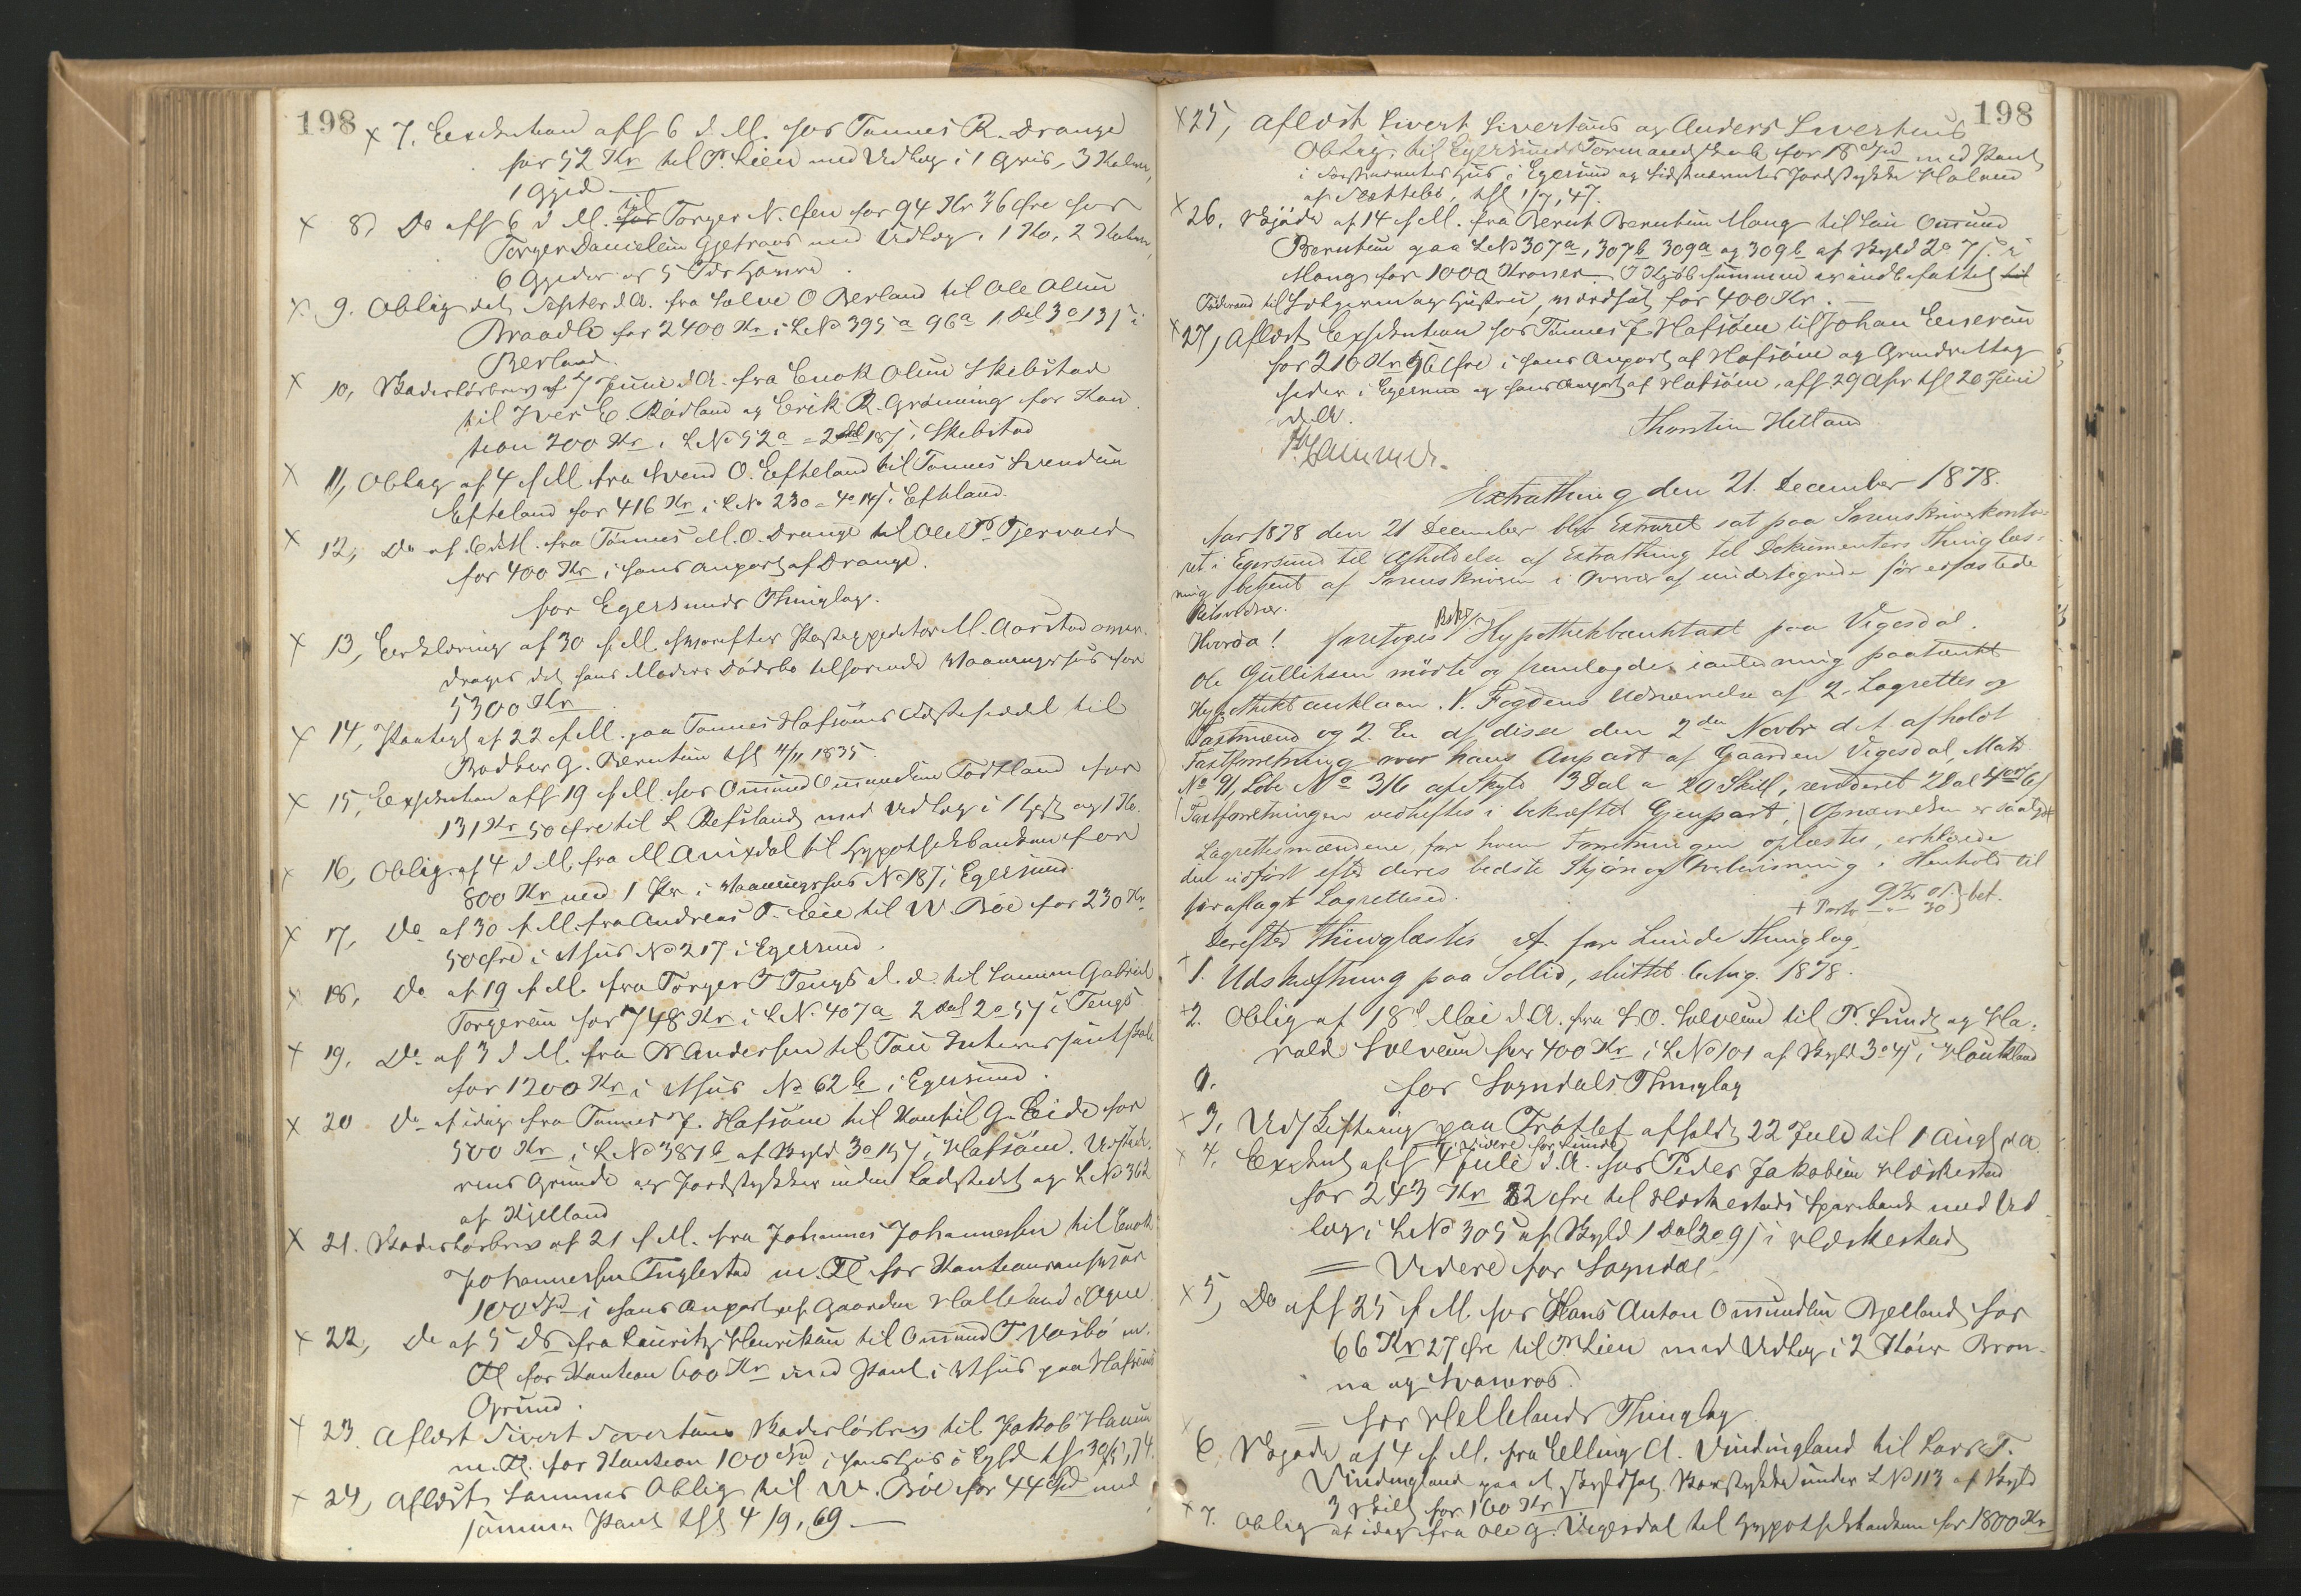 198
x 7. Exekution aff 6 d. M. hos Tønnes R. Drange
for 52 Kr til P. Lien med Udlæg i 1 Gris, 3 Kalve,
1 Gjed
x 8) Do aff 6 d M. til Torger N. for 94 Kr 36 Øre hos
Torger Danielsen Gjetraas med Udlæg i 1 Ko, 2 Kalve,
6 Gjeder og 5 Tdr Havre
x 9. Oblig dat Septer d.A. fra Salve O Berland til Ole Olsen
Braadli for 2400 Kr i LNo 395a 96a 1 Dal 3 o 13 s i
Berland
x 10, Skadesløsbrev af 7 Juni d.A. fra Enok Olsen Skibstad
til Iver E. Rødland og Erik R. Grønning for Kau
tion 200 Kr i LNo 52a = 2 18 s i Skibstad
x 11, Oblig af 4 f M. fra Svend O. Efteland til Tønnes Svendsen
Efteland for 416 Kr i LNo 230 = 4 o 14 s i Efteland.
x 12, Do af 6 d.M. fra Tønnes M. O. Drange til Ole P. Tjervaag
for 400 Kr i hans Anpart af Drange.
for Egersunds Thinglag.
x 13, Erklæring af 30 f. M. hvorefter Postexpeditør M. Aarstad
drages det hans Moders Dødsbo tilhørende Vaaningshus for
5300 Kr
x 14, Panteg af 22 f M. paa Tønnes Hafsøens til
Bodtker G. Berntsen thl 4/11 1835
x 15, Exekution aff 19 f M. hos Omund Omundsen Todtland for
131 Kr 50 Øre til L Refsland med Udlæg i 1 og 1 Ko.
x 16, Oblig. af 4 d M. fra M Anixdal til Hypothekbanken for
800 Kr med 1 Pr i Vaaningshus No 187 i Egersund.
x 17, Do af 30 f. M. fra Andreas T. Eie til W. Bøe for 230 Kr
50 Øre i Vhus No 217 i Egersund.
x 18, Do af 19 f. M. fra Torger T Tengs d. æ. til Sønnen Gabriel
Torgersen for 748 Kr i LN. 407a 2 Dal 2 o 5 s i Tengs
x 19, Do af 3 d M. fra N Andersen til Tou
for 1200 Kr i Vhus No 62 b i Egersund.
x 20 Do af idag fra Tønnes J. Hafsøen til G. Eide for
500 Kr i LNo 387 b af Skyld 3 o 15 s i Hafsøen.
Grunde og Jordstykker inden Ladestedet og LNo 362
af Kjelland
x 21. Skadesløsbrev af 21 f M. fra Johannes Johannesen til Enok
Johannesen Tuglestad m. Fl for Kautionsansvar
100 Spd i hans Anpart af Gaarden Helleland i Ogne.
x 22, Do af 5 ds fra Lauritz Henriksen til Omund T. Vasbø m.
Fl for Kaution 600 Kr med Pant i Vhus paa Hafsøens
Grund.
x 23. Aflæst Sivert Sivertsens Skadesløsbrev til Jakob Hansen
m. Fl. for Kaution 100 Spd i hans Hus i Egsd thl 30/5, 74.
x 24, Aflæst Sammes Oblig til W. Bøe for 44 Spd med
samme Pant thl 4/9, 69 —
198
x 25, Aflæst Sivert Sivertsens og Anders Sivertsens
Oblig. til Egersunds Formandskab for 18 Spd med Pant
i Førstnævntes Hus i Egersund og Sidstnævntes Jordstykke
af Slettebø, thl 1/7, 47.
x 26. Skjøde af 14 f M. fra Bernt Berntsen Mong til Søn Omund
Berntsen paa LNo 307a, 307b 309a og 309b af Skyld 2 o 7 s i
Mong for 1000 Kroner. I Kjøbesummen er indbefattet
Føderaad til Sælgeren og Hustru, værdsat for 400 Kr.
x 27, Aflæst Exekution hos Tønnes J. Hafsøen til Johan Eiersen
for 216 Kr 56 Øre i hans Anpart af Hafsøen og Grundrettig
heder i Egersund og hans Anpart af Hafsøen, aff 29 Apr thl 20 Juni
d.A.
Thorstein Hetland
Extrathing den 21. December 1878.
Aar 1878 den 21 December blev Extraret sat paa Sorenskriverkonto-
ret i Egersund til Afholdelse af Extrathing til Dokumenters Thinglæs-
ning betjent af Sorenskriveren i Overvær af undertegnede før edfæstede
Retsvidner.
Hvorda! foretoges Hypothekbanktaxt paa Vigesdal.
Ole Gulliksen mødte og fremlagde i anledning paatænkt
Hypothekbanklaan. 1. Fogdens Udnævnelse af 2 Lagrettes og
Taxtmænd og 2. En af disse den 2den Novbr d. A. afholdt
Taxtforretning over hans Anpart af Gaarden Vigesdal, Matr
No 91, Løbe No 316 af Skyld 13 Dal o 20 Skill, revideret 2 Dal 4 ort 6 s
(Taxtforretningen vedheftes i bekræftet Gjenpart,
Lagrettesmændene, for hvem Forretningen oplæstes, erklærede
den udført efter deres bedste Skjøn og Overbevisning i Henhold til
før aflagt Lagrettesed.
+ Porto 30 bet.
Derefter thinglæstes A. for Lunde Thinglag,
x 1. Udskiftning paa Sollid, sluttet 6 Aug. 1878.
x 2. Oblig af 18 Mai d.A. fra S.O. til P. Lund og Ha-
rald for 400 Kr i LNo 101 af Skyld 3 o 4 s i
for Sogndals Thinglag
x 3, Udskiftning paa Frøtlet afholdt 22 Juli til 1 Augt d A.
Videre for Lunde
x 4, Exekut. aff 4 Juli d.A. hos Peder Jakobsen Heskestad
for 243 Kr 82 Øre til Heskestads Sparebank med Ud
læg i LNo 305 af Skyld 1 Dal 2 o 9 s i Heskestad
= Videre for Sogndal
x 5, Do aff 25 f M. hos Hans Anton Omundsen Bjelland for
66 Kr 27 Øre til P Lien med Udlæg i 2 Køer Bron-
na og Svaneros.
= for Hellelands Thinglag
x 6, Skjøde af 4 f M. fra Elling A. Vindingland til Lars T.
Vindingland paa et fraskilt under LNo 113 af Skyld
3 Skill for 160 Kr
x 7. Oblig af idag fra Ole G. Vigesdal til Hypothekbanken for 1800 Kr